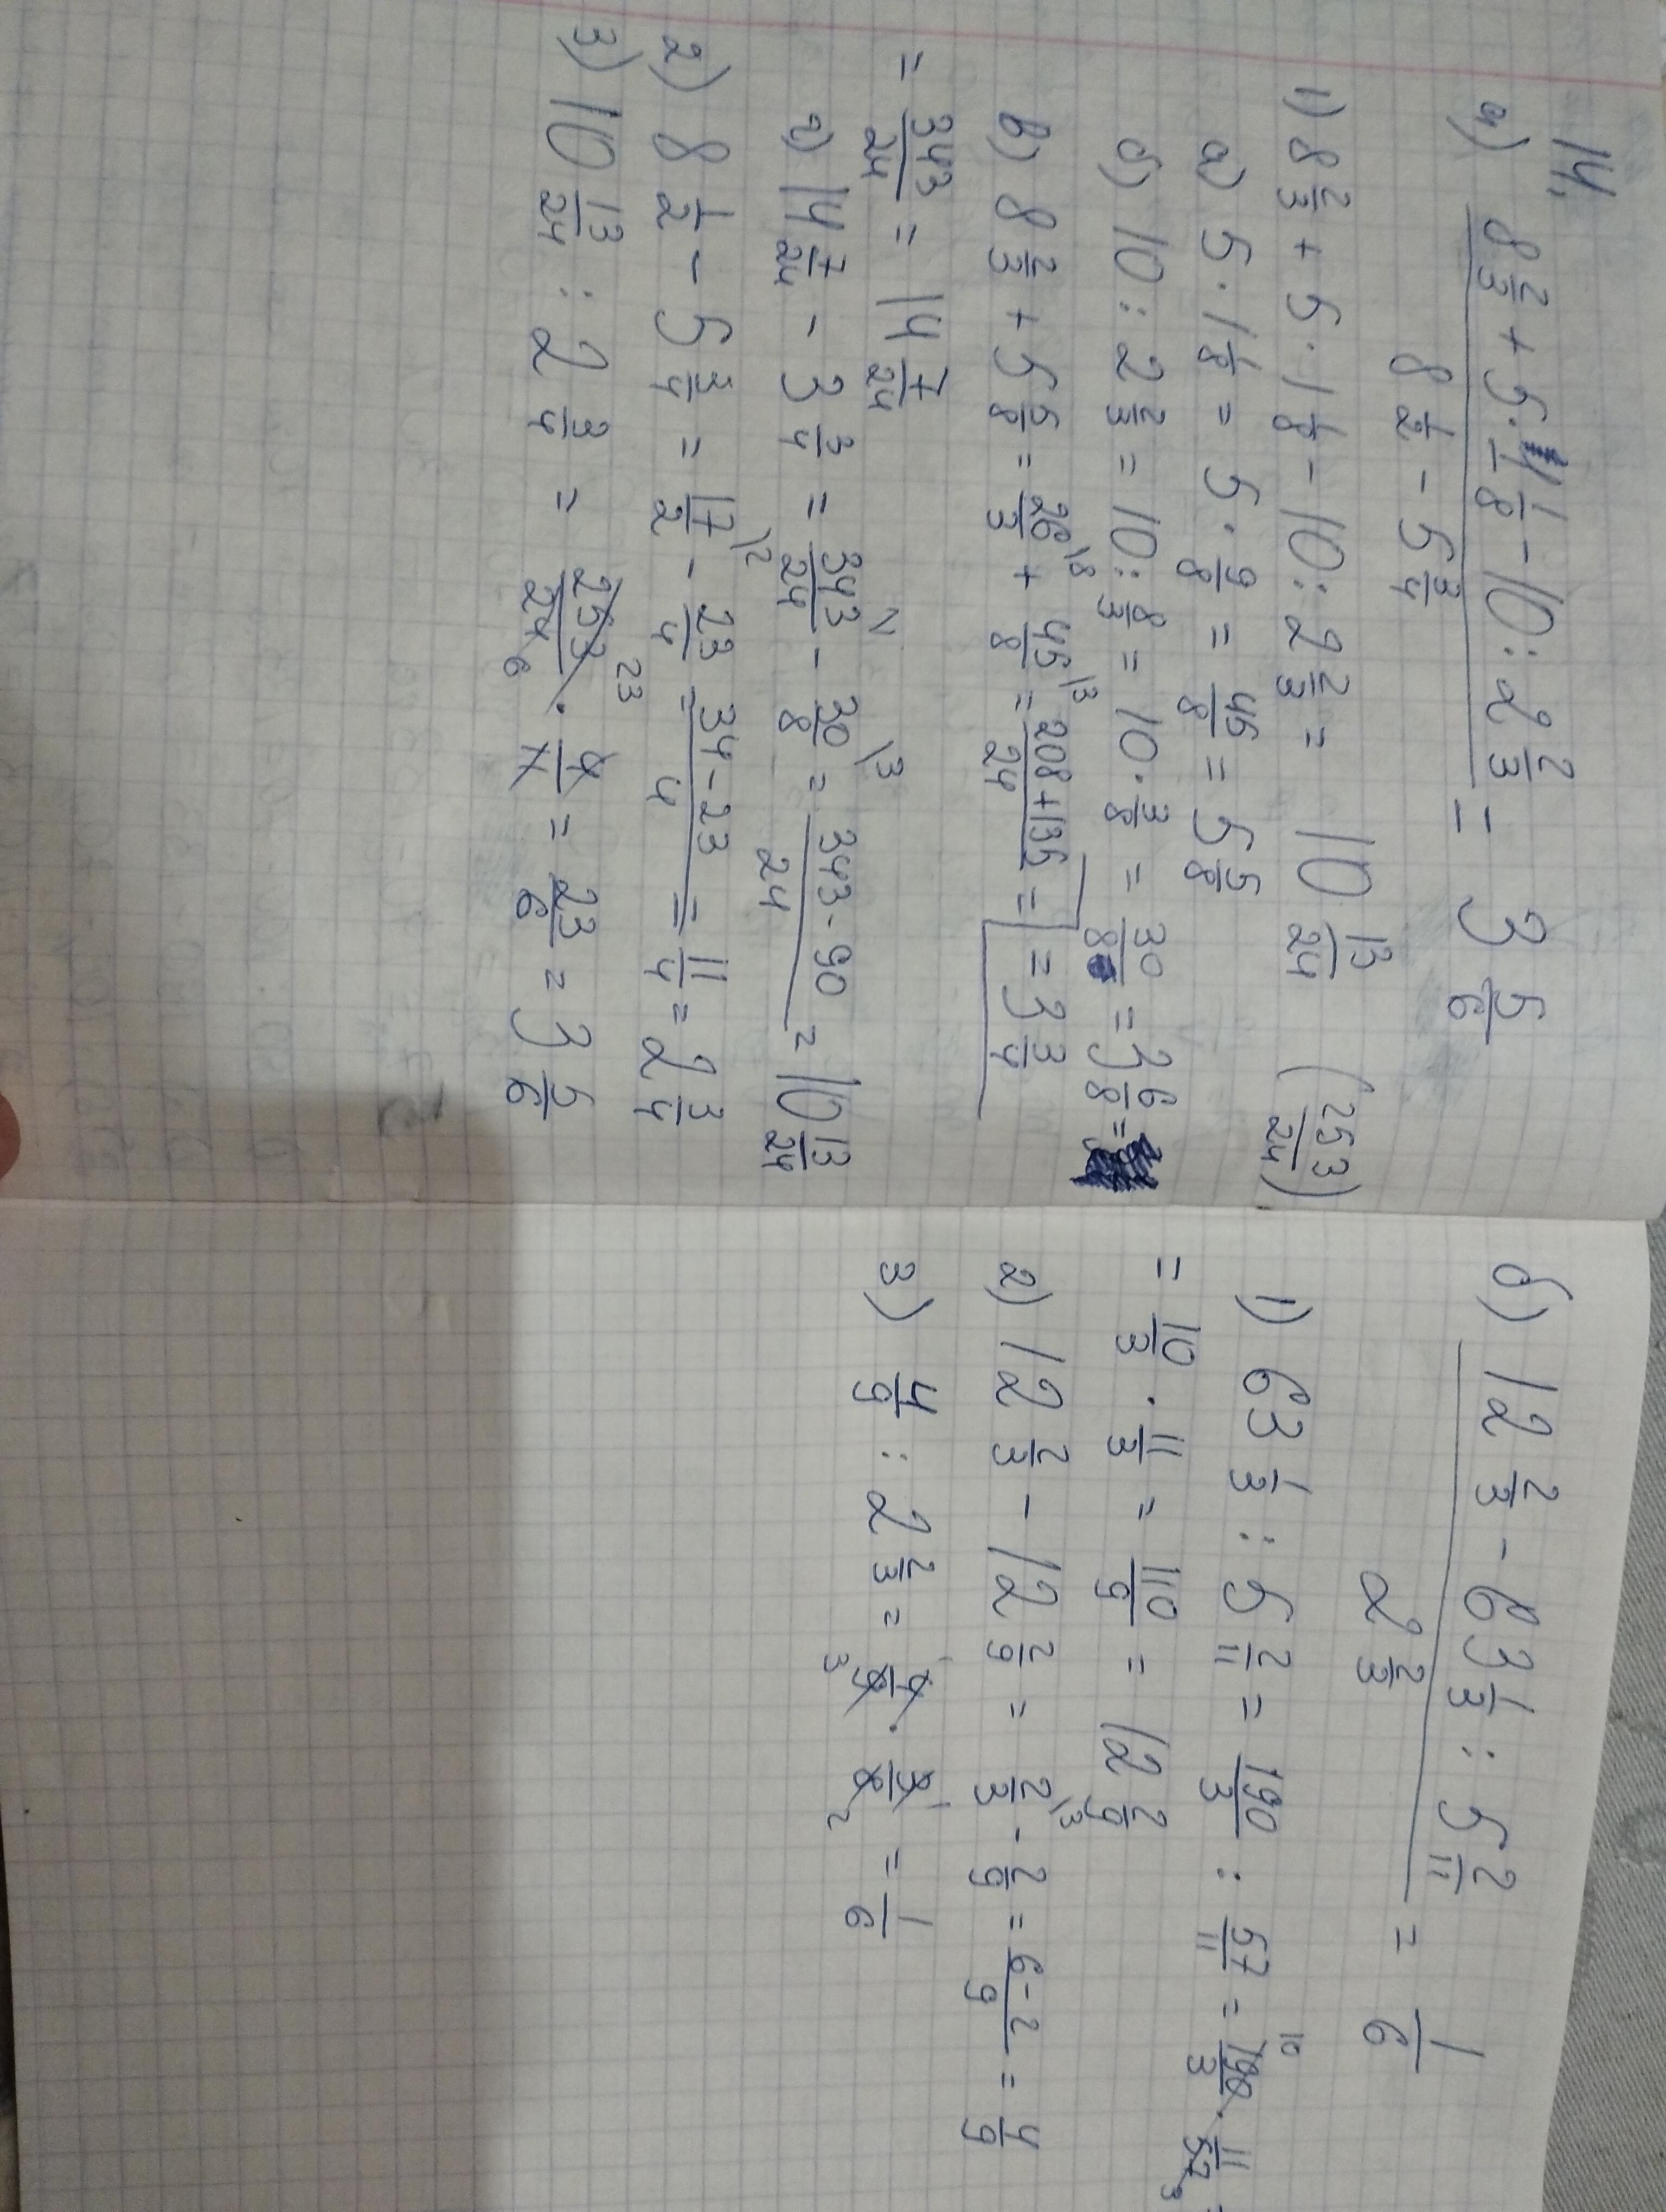 14.
а) (8 2/3 + 5 · 1 1/8 - 10 : 2 2/3) / (8 1/2 - 5 3/4) = 3 5/6
1) 8 2/3 + 5 · 1 1/8 - 10 : 2 2/3 = 10 13/24 (253/24)
а) 5 · 1 1/8 = 5 · 9/8 = 45/8 = 5 5/8
б) 10 : 2 2/3 = 10 : 8/3 = 10 · 3/8 = 30/8 = 3 6/8 =
= 3 3/4
в) 8 2/3 + 5 5/8 = 26/3 \8 + 45/8 \3 = (208 + 135)/24 =
= 343/24 = 14 7/24
г) 14 7/24 - 3 3/4 = 343/24 \1 - 30/8 \3 = (343 - 90)/24 = 10 13/24
2) 8 1/2 - 5 3/4 = 17/2 \2 - 23/4 = (34 - 23)/4 = 11/4 = 2 3/4
3) 10 13/24 : 2 3/4 = 253/24 · 4/11 = 23/6 = 3 5/6
б) (12 2/3 - 63 1/3 : 5 2/11) / (2 2/3) = 1/6
1) 63 1/3 : 5 2/11 = 190/3 : 57/11 = 190/3 · 11/57 =
= 10/3 · 11/3 = 110/9 = 12 2/9
2) 12 2/3 - 12 2/9 = 2/3 \3 - 2/9 = (6 - 2)/9 = 4/9
3) 4/9 : 2 2/3 = 4/9 · 3/8 = 1/6